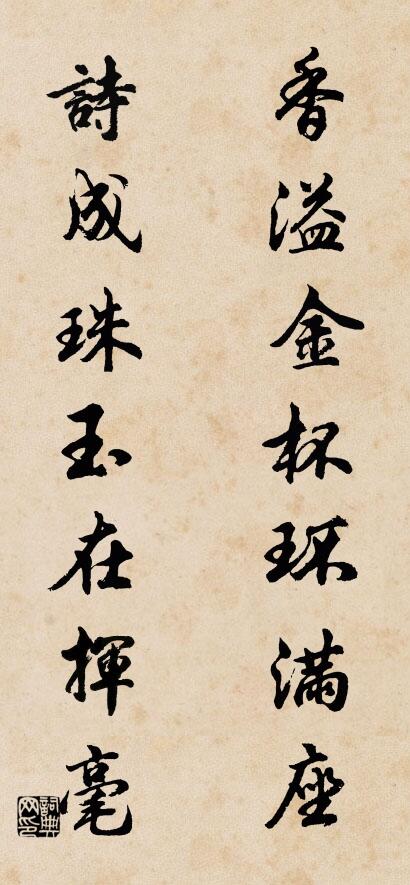 香溢金杯环满座
詩成珠玉在揮毫
詞典
网印